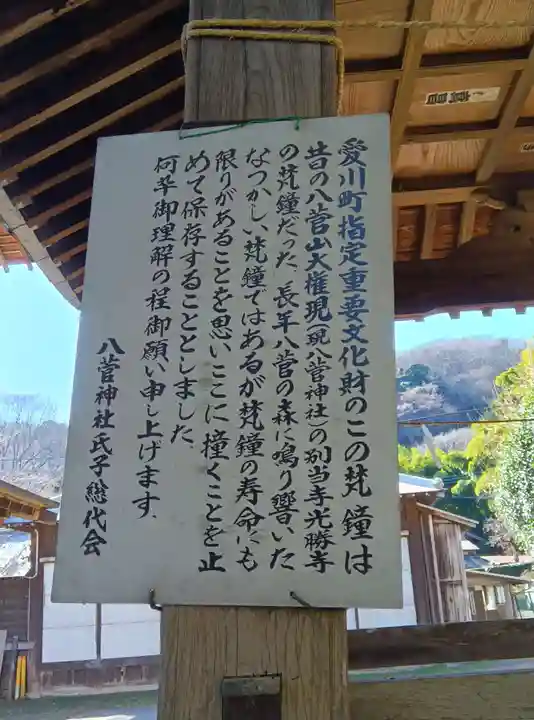 愛川町指定重要文化財のこの梵鐘は
昔の八菅山大権現(現八菅神社)の別当寺光勝寺
の梵鐘だった、長年八菅の森に鳴り響いた
なつかしい梵鐘ではあるが梵鐘の寿命にも
限りがあることを思いここに撞くことを止
めて保存することとしました、
何卒御理解の程御願い申し上げます、
八菅神社氏子総代会